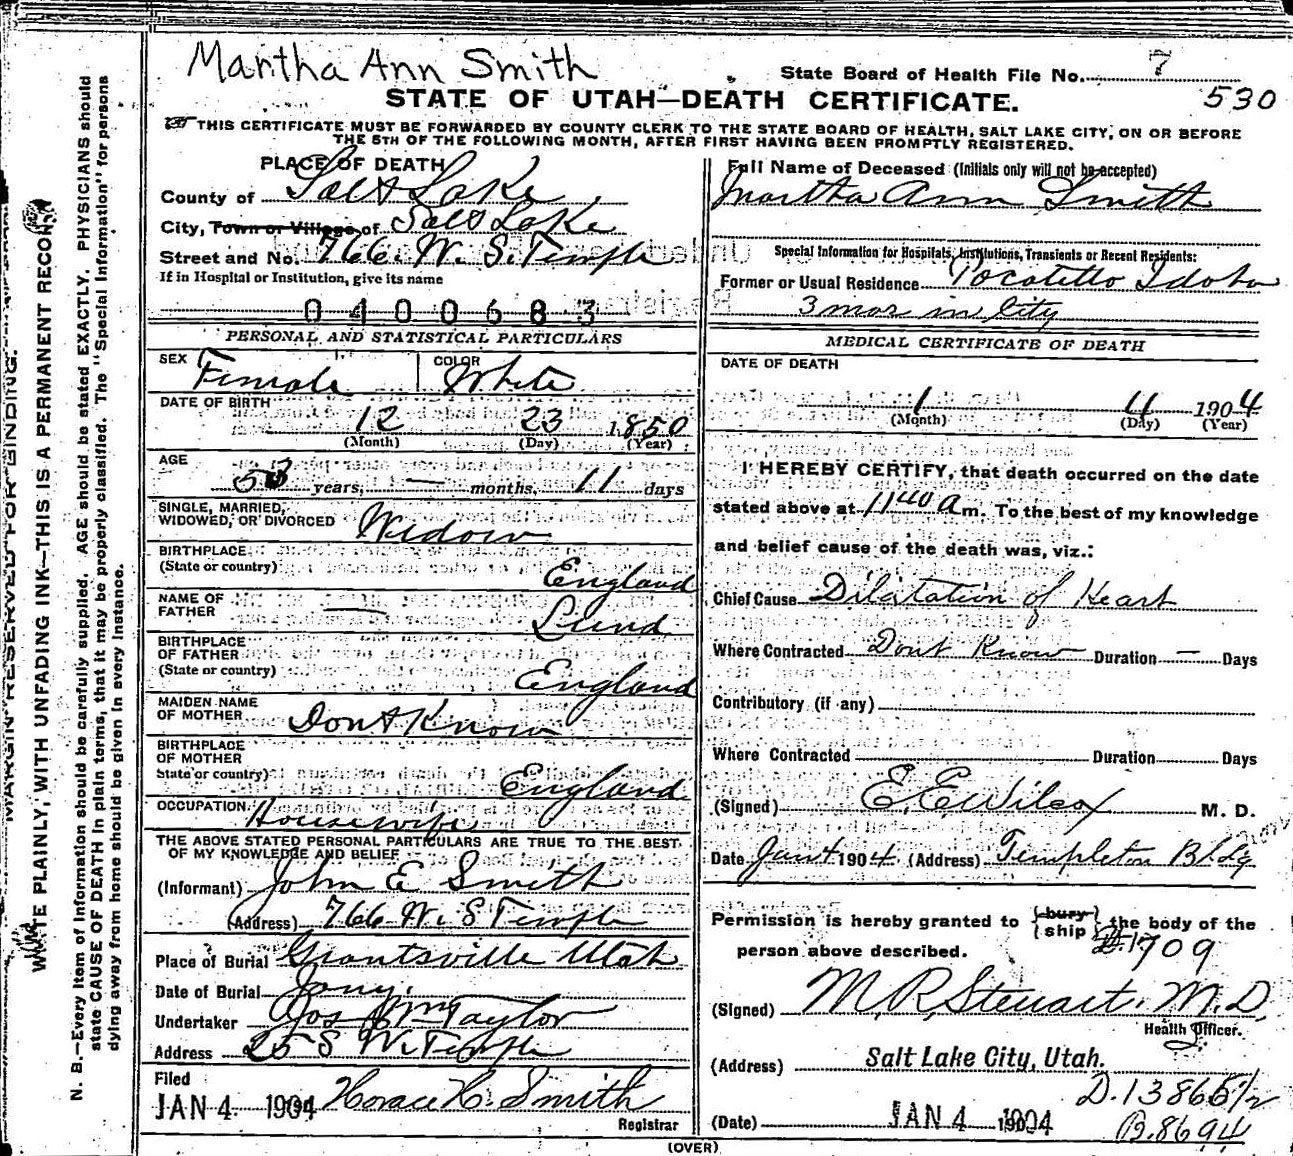 Martha Ann Smith
State Board of Health File No. 7
530
STATE OF UTAH—DEATH CERTIFICATE.
THIS CERTIFICATE MUST BE FORWARDED BY COUNTY CLERK TO THE STATE BOARD OF HEALTH, SALT LAKE CITY, ON OR BEFORE
THE 5TH OF THE FOLLOWING MONTH, AFTER FIRST HAVING BEEN PROMPTLY REGISTERED.
PLACE OF DEATH
County of Salt Lake
City, Town or Village of Salt Lake
Street and No. 766. W. S. Temple
If in Hospital or Institution, give its name
0400683
PERSONAL AND STATISTICAL PARTICULARS
SEX Female COLOR White
DATE OF BIRTH
12 23 1850
(Month) (Day) (Year)
AGE
53 years, — months, 11 days
SINGLE, MARRIED,
WIDOWED, OR DIVORCED Widow
BIRTHPLACE
(State or country) England
NAME OF
FATHER — Lund
BIRTHPLACE
OF FATHER
(State or country) England
MAIDEN NAME
OF MOTHER Dont Know
BIRTHPLACE
OF MOTHER
State or country) England
OCCUPATION Housewife
THE ABOVE STATED PERSONAL PARTICULARS ARE TRUE TO THE BEST
OF MY KNOWLEDGE AND BELIEF
(Informant) John E Smith
(Address) 766 W. S Temple
Place of Burial Grantsville Utah
Date of Burial Jany.
Undertaker Jos Wm Taylor
Address 25 S W. Temple
Filed
JAN 4 1904 Horace H. Smith
Registrar
Full Name of Deceased (Initials only will not be accepted)
Martha Ann Smith
Special Information for Hospitals, Institutions, Transients or Recent Residents:
Former or Usual Residence Pocatello Idaho
3 mos in City
MEDICAL CERTIFICATE OF DEATH
DATE OF DEATH
1 4 1904
(Month) (Day) (Year)
I HEREBY CERTIFY, that death occurred on the date
stated above at 11 40 a m. To the best of my knowledge
and belief cause of the death was, viz.:
Chief Cause Dilatation of Heart
Where Contracted Dont Know Duration — Days
Contributory (if any)
Where Contracted Duration Days
(Signed) E. E. Wilcox M. D.
Date Jan 4 1904. (Address) Templeton Bldg
Permission is hereby granted to { bury
ship } the body of the
person above described. 1709
(Signed) M. R. Stewart. M. D.
Health Officer.
(Address) Salt Lake City, Utah.
D. 13865 1/2
(Date) JAN 4 1904
B. 8694
(OVER)
MARGIN RESERVED FOR BINDING.
WRITE PLAINLY, WITH UNFADING INK—THIS IS A PERMANENT RECORD
N. B.—Every item of information should be carefully supplied. AGE should be stated EXACTLY. PHYSICIANS should
state CAUSE OF DEATH in plain terms, that it may be properly classified. The "Special Information" for persons
dying away from home should be given in every instance.